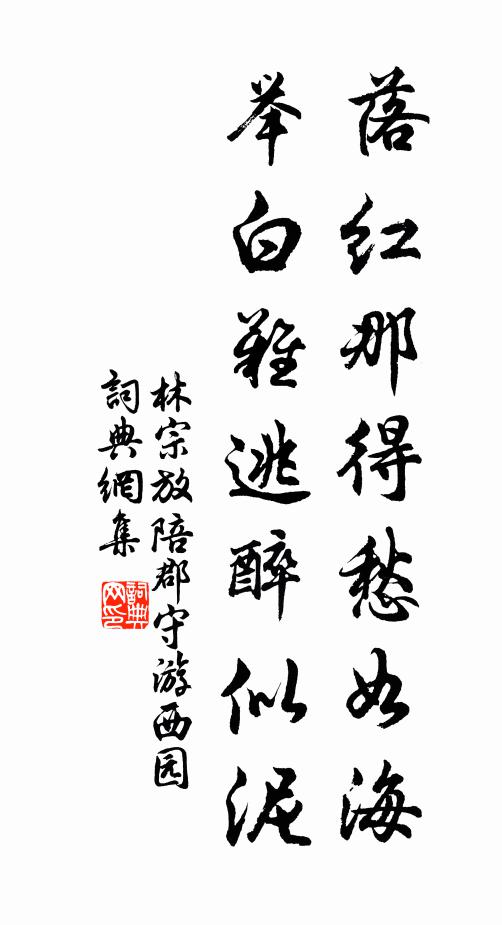 落红那得愁如海
举白难逃醉似泥
林宗放陪郡守游西园
詞典網集
詞典
网印